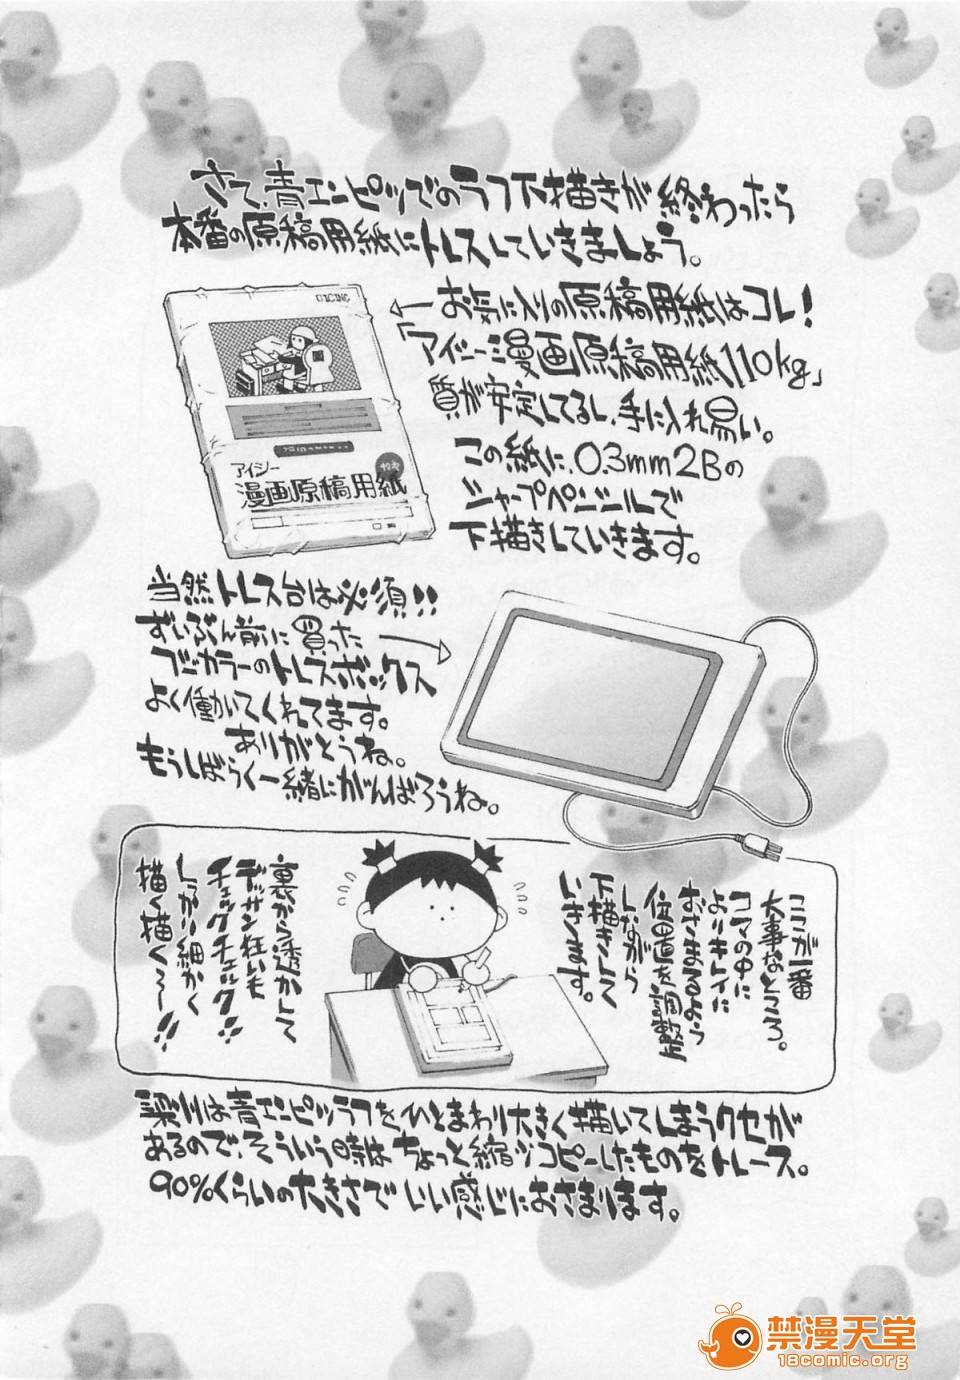 さて、青エンピツでのラフ下描きが終わったら
本番の原稿用紙にトレスしていきましょう。
←お気に入りの原稿用紙はコレ!
「アイシー漫画原稿用紙110kg」
質が安定してるし、手に入れ易い。
この紙に、0.3mm2Bの
シャープペンシルで
下描きしていきます。
アイシー
漫画原稿用紙
当然トレス台は必須!!
ずいぶん前に買った
→
フジカラーのトレスボックス
よく働いてくれてます。
ありがとうね。
もうしばらく一緒にがんばろうね。
ここが一番
大事なところ。
コマの中に
よりキレイに
おさまるよう
位置を調整
しながら
下描きして
いきます。
裏から透かして
デッサン狂いも
チェックチェック!!
しっかり細かく
描く描く〜!!
梁川は青エンピツラフを、ひとまわり大きく描いてしまうクセが
あるので、そういう時はちょっと縮小コピーしたものをトレース。
90%くらいの大きさでいい感じにおさまります。
禁漫天堂
18comic.org